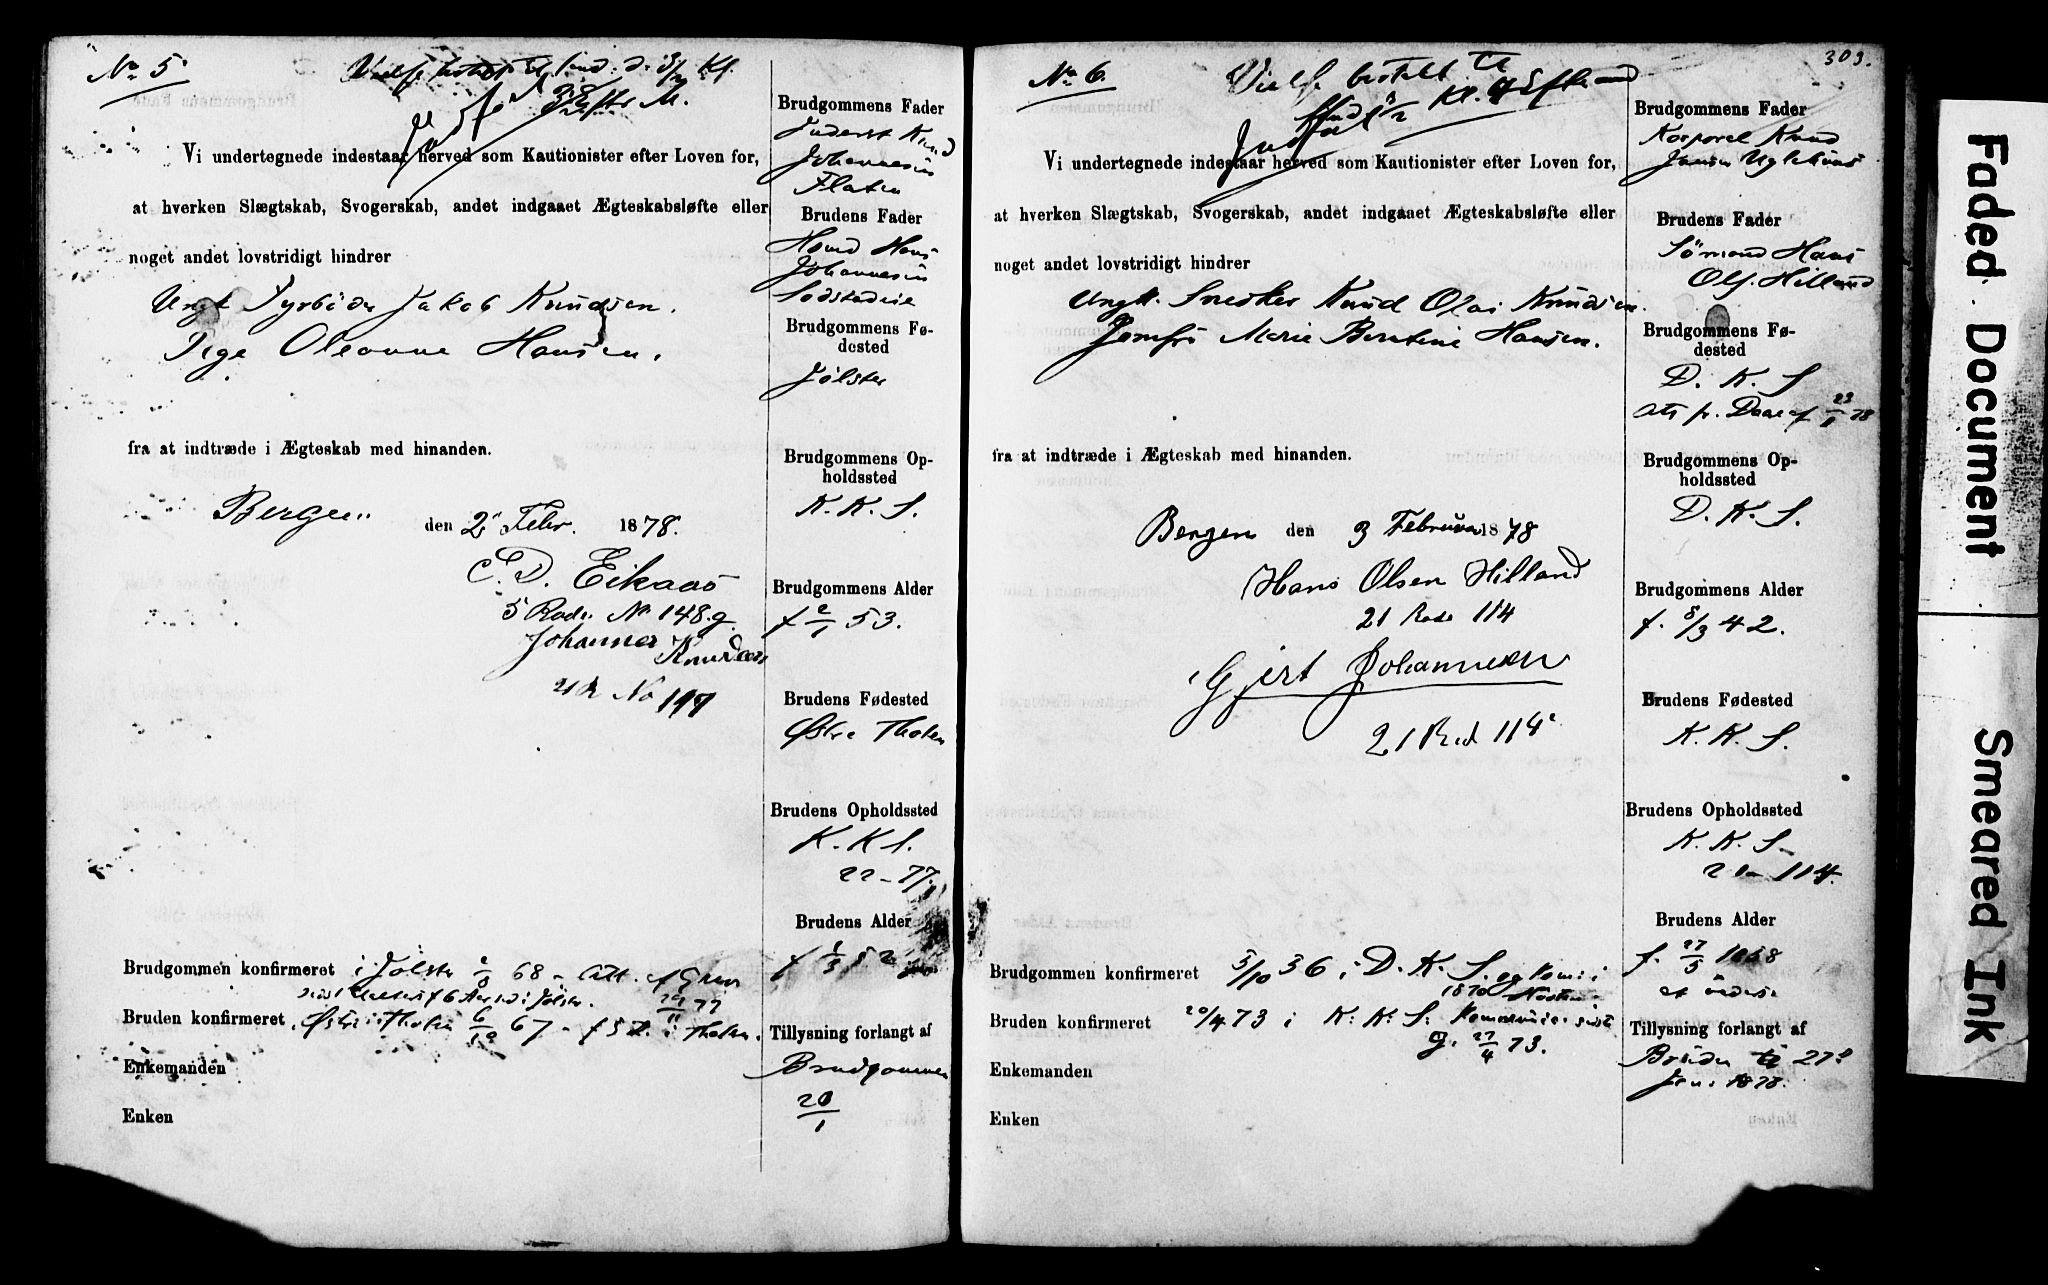 No 5
Brudgommens Fader
Johannesen
Flaten
Vi undertegnede indestaar herved som Kautionister efter Loven for,
at hverken Slægtskab, Svogerskab, andet indgaaet Ægteskabsløfte eller
noget andet lovstridigt hindrer
Brudens Fader
Johannesen
Ungk. Fyrbøder Jakob Knudsen.
Pige Oleanne Hansen.
Brudgommens Fø-
dested
Jølster
fra at indtræde i Ægteskab med hinanden.
Brudgommens Op-
holdssted
K. K. S.
Bergen den 2 Febr. 1878.
E. D. Eikaas
5 Rode No 148.g.
Johannes Knudsen
21 R No 117
Brudgommens Alder
f 2/1 53.
Brudens Fødested
Østre Thoten
Brudens Opholdssted
K. K. S.
22 - 77.
Brudens Alder
f 1/3 52
Brudgommen konfirmeret i Jølster 68 - Att. f
Bruden konfirmeret Østre Thoten 6/10 67 - f 52 i Thoten.
Tillysning forlangt af
Brudgommen
20/1
Enkemanden
Enken
303.
No 6.
Vielse bestelt
Brudgommens Fader
Korporal Knud
Jansen
Vi undertegnede indestaar herved som Kautionister efter Loven for,
at hverken Slægtskab, Svogerskab, andet indgaaet Ægteskabsløfte eller
noget andet lovstridigt hindrer
Brudens Fader
Sømand Hans
Ols. Hilland
Ungk. Snedker Knud Olai Knudsen.
Jomfru Marie Berntine Hansen.
Brudgommens Fø-
dested
D. K. S
Att fr. 23/1 78
fra at indtræde i Ægteskab med hinanden.
Brudgommens Op-
holdssted
D. K. S.
Bergen den 3 Februar 1878
Hans Olsen Hilland
21 Rode 114
Gjert Johannesen
21 Rod 114
Brudgommens Alder
f. 8/3 42.
Brudens Fødested
K. K. S.
Brudens Opholdssted
K. K. S.
21 - 114.
Brudens Alder
f. 27/5 1858
Brudgommen konfirmeret 5/10 36 i D. K. S. og Kom: i
1870
Bruden konfirmeret 20/4 73 i K: K: S:
g. 27/4 73.
Tillysning forlangt af
Bruden 27
Jan: 1878.
Enkemanden
Enken
Faded Document
Smeared Ink